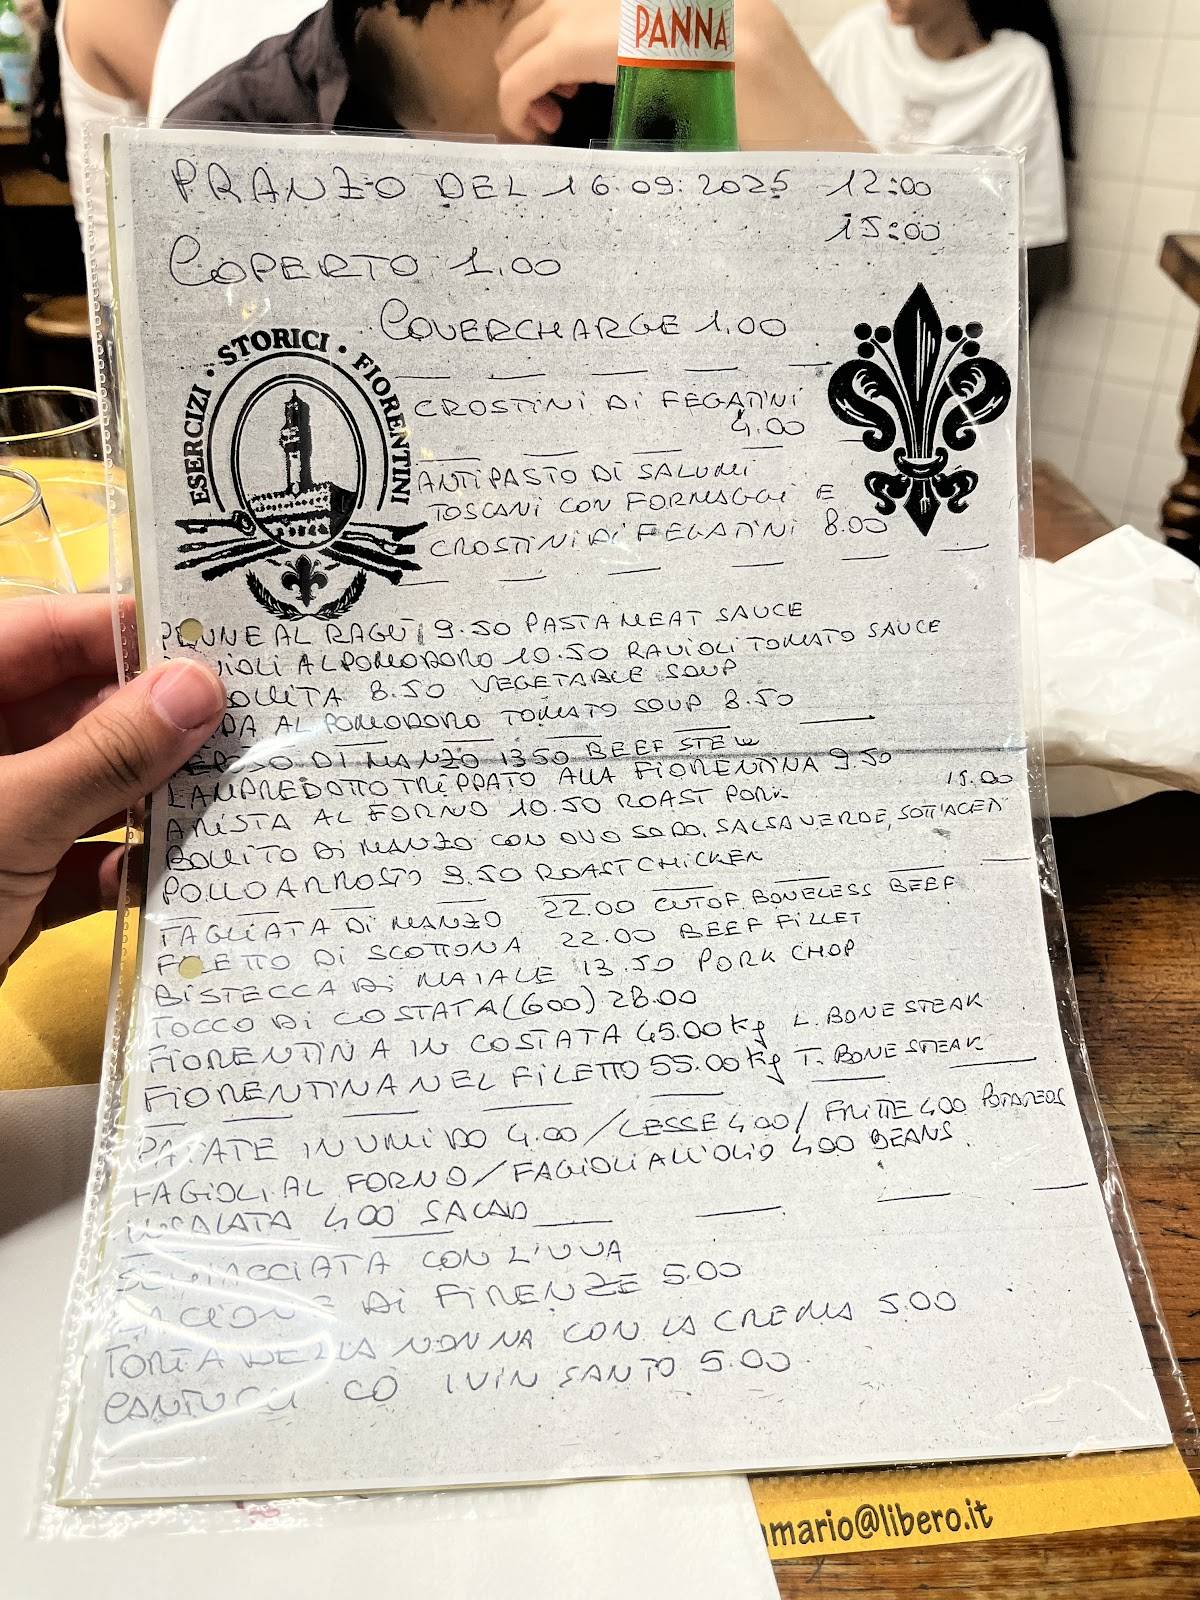 PANNA
PRANZO DEL 16.09.2025 12:00
15:00
COPERTO 1.00
COVERCHARGE 1.00
ESERCIZI · STORICI · FIORENTINI
CROSTINI DI FEGATINI
4.00
ANTIPASTO DI SALUMI
TOSCANI CON FORMAGGI E
CROSTINI DI FEGATINI 8.00
PENNE AL RAGU 9.50 PASTA MEAT SAUCE
VIOLI AL POMODORO 10.50 RAVIOLI TOMATO SAUCE
OLLITA 8.50 VEGETABLE SOUP
PA AL POMODORO TOMATO SOUP 8.50
DI MANZO 1350 BEEF STEW
LAMPREDOTTO TRIPPATO ALLA FIORENTINA 9.50
ARISTA AL FORNO 10.50 ROAST PORK 15.00
BOLLITO DI MANZO CON OVO SODO, SALSA VERDE, SOTT'ACETI
POLLO ARROSTO 9.50 ROAST CHICKEN
TAGLIATA DI MANZO 22.00 CUT OF BONELESS BEEF
FILETTO DI SCOTTONA 22.00 BEEF FILLET
BISTECCA DI MAIALE 13.50 PORK CHOP
TOCCO DI COSTATA (600) 28.00
FIORENTINA IN COSTATA 45.00 Kg L. BONE STEAK
FIORENTINA NEL FILETTO 55.00 Kg T. BONE STEAK
PATATE IN UMIDO 4.00/LESSE 400/FRITTE 400 POTATEOS
FAGIOLI AL FORNO/FAGIOLI ALL'OLIO 400 BEANS.
INSALATA 400 SALAD
SCHIACCIATA CON L'UVA
DI FIRENZE 5.00
TORTA DELLA NONNA CON LA CREMA 5.00
CANTUCCI CO I VIN SANTO 5.00
mario@libero.it